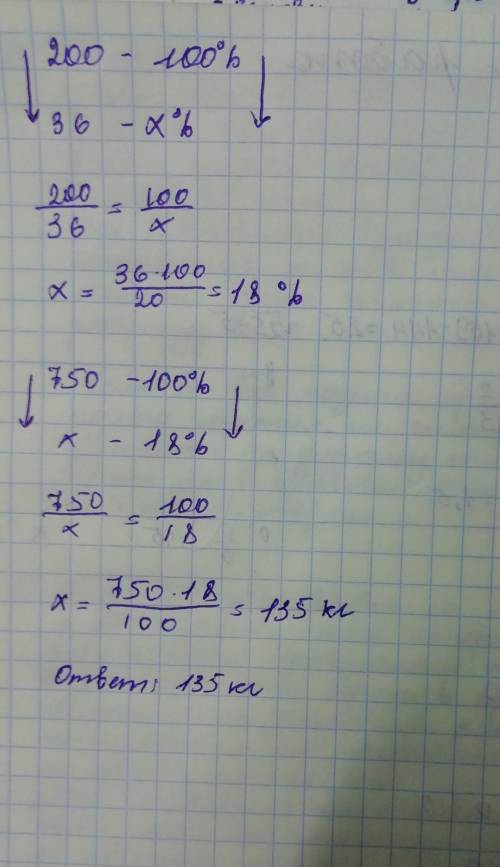 200 - 100%
36 - x%
200/36 = 100/x
x = 36·100/20 = 18 %
750 - 100%
x - 18%
750/x = 100/18
x = 750·18/100 = 135 кг
Ответ: 135 кг